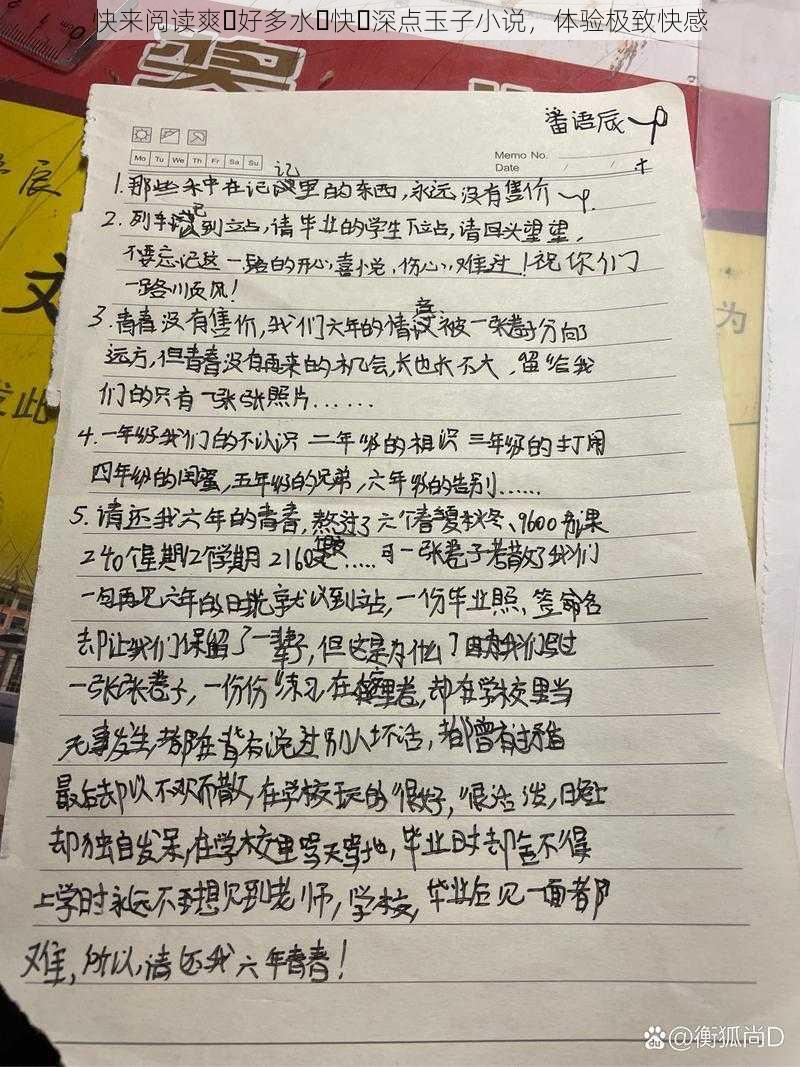 快来阅读爽好多水快深点玉子小说，体验极致快感
番语辰
Memo No.
Date / /
Mo Tu We Th Fr Sa Su
记
1.那些永中在记里的东西,永远没有售价
2.列车到立占,请毕业的学生下立占,请回头望望,
不要忘记这一路的开心,喜小兑,伤心,难过!祝你们
一路川页风!
3.青春没有售价,我们六年的情被一张卷子分向
远方,但青春没有再来的机会,长也长不大,留给我
们的只有一张张照片......
4.一年级我们的不认识 二年级的相识 三年级的打闹
四年级的闺蜜,五年级的兄弟,六年级的告别......
5.请还我六年的青春,熬过了六个春夏秋冬、9600节课
240个星期12个学期2160.....可一张卷子若散了我们
一句再见六年的日光京尤以到立占,一份毕业照,签命名
却让我们保留了一辈子,但这是为什么?因为我们写过
一张张卷子,一份份练习,在里卷,却在学校里当
无事发生,都在背有说过别人坏话,都曾有过矛盾
最后却以不欢而散,在学校玩的很好,很活泼,日免上
却独自发呆,在学校里骂天骂地,毕业日寸却舍不得
上学时永远不想见到老师,学校,毕业后见一面都
难,所以,请还我六年青春!
为
文
辰
发此
@衡狐尚D